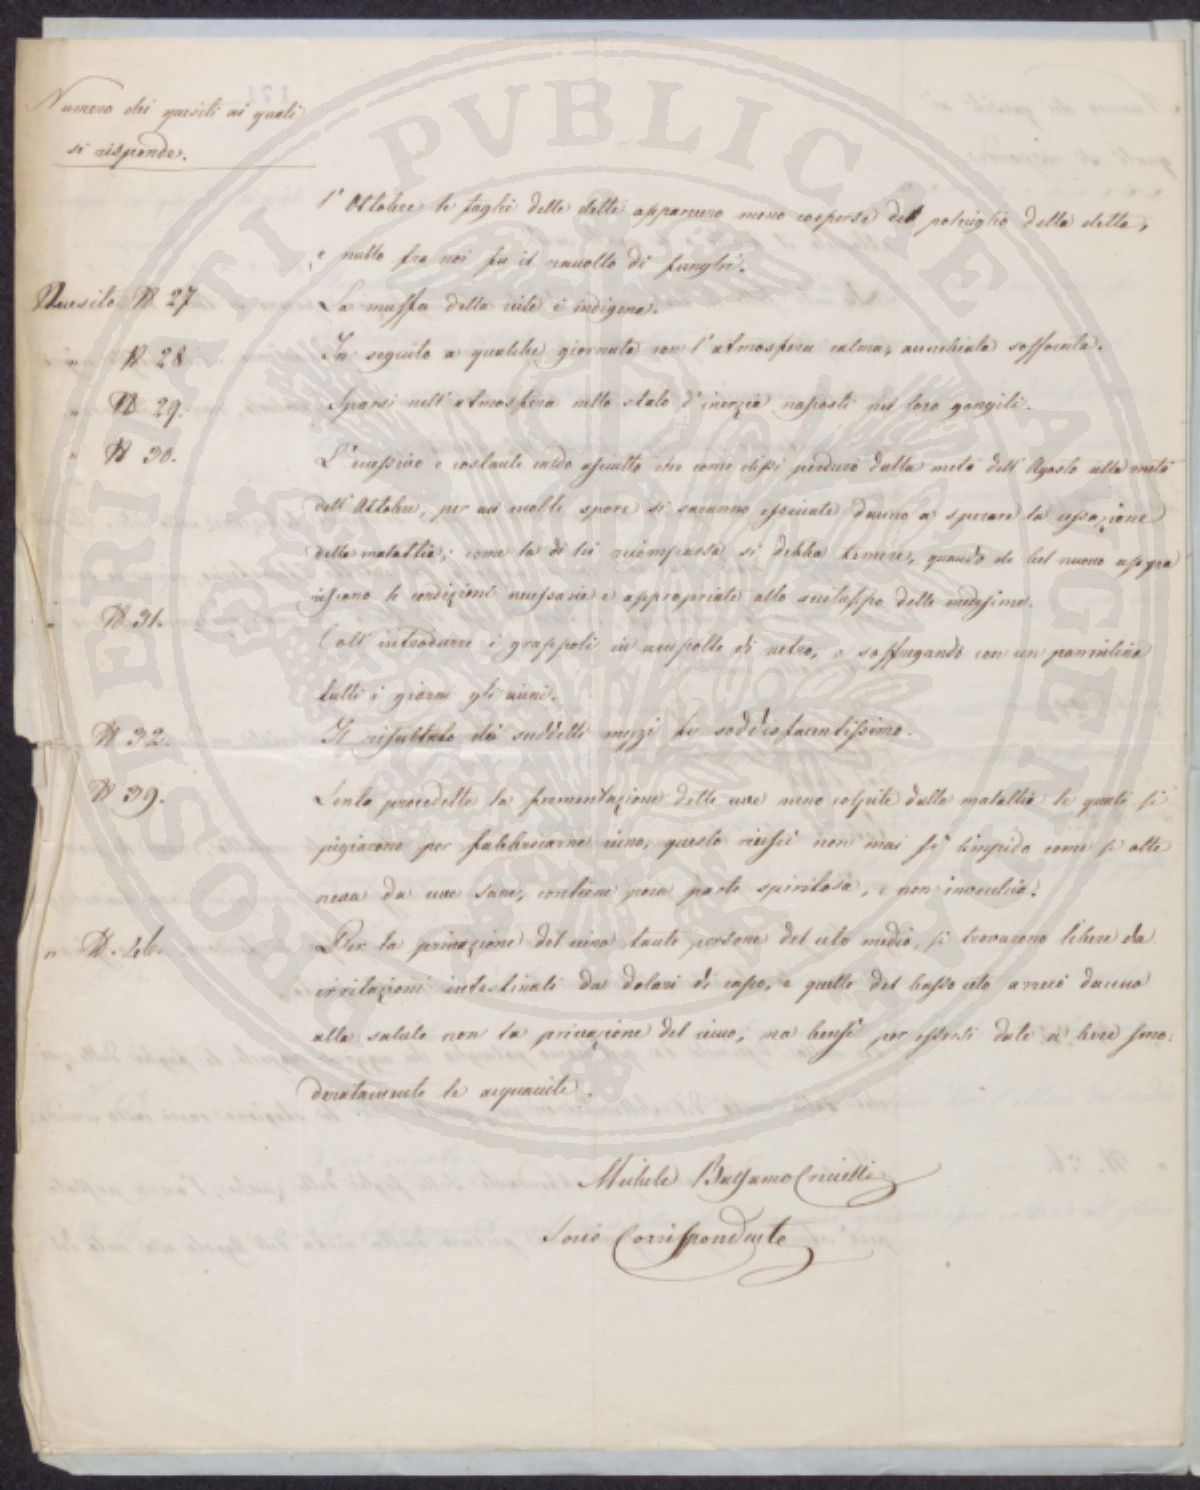 Numero dei quesiti ai quali
si risponde.
l'Ottobre le foglie delle dette apparvero meno cosperse del polviglio della detta,
e nullo fra noi fu il raccolto di funghi.
Quesito N 27 La muffa della vite è indigena.
" N 28 In seguito a qualche giornata con l'atmosfera calma, annebiata soffocata.
" N 29. Sparsi nell'atmosfera nello stato d'inerzia nascosti nei loro gongili.
" N 30. L'eccessivo e costante caldo asciutto che come dissi perdurò dalla metà dell'Agosto alla metà
dell'Ottobre, per cui molte spore si saranno essicate danno a sperare la cessazione
della malattia; come la di lei ricomparsa si debba temere, quando di bel nuovo appa
riscano le condizioni necessarie e appropriate allo sviluppo della medesima.
" N 31. Coll'introdurre i grappoli in ampolle di vetro, o soffregando con un pannilino
tutti i giorni gli acini.
N 32. Il risultato dei suddetti mezzi fu soddisfacentissimo.
N 39. Lenta procedette la fermentazione delle uve meno colpite dalla malattia le quali si
pigiarono per fabbricarne vino, questo riuscì non mai sì limpido come si otte
neva da uve sane, contiene poca parte spiritosa, e non invecchia.
" N. 46. Per la privazione del vino tante persone del ceto medio, si trovarono libere da
irritazioni intestinali da dolori di capo, e quelle del basso ceto arrecò danno
alla salute non la privazione del vino, ma bensì per essersi date a bere smo:
deratamente le acquavite.
Michele Balsamo Crivelli
Socio Corrispondente
POSTERITATI PUBLICAE